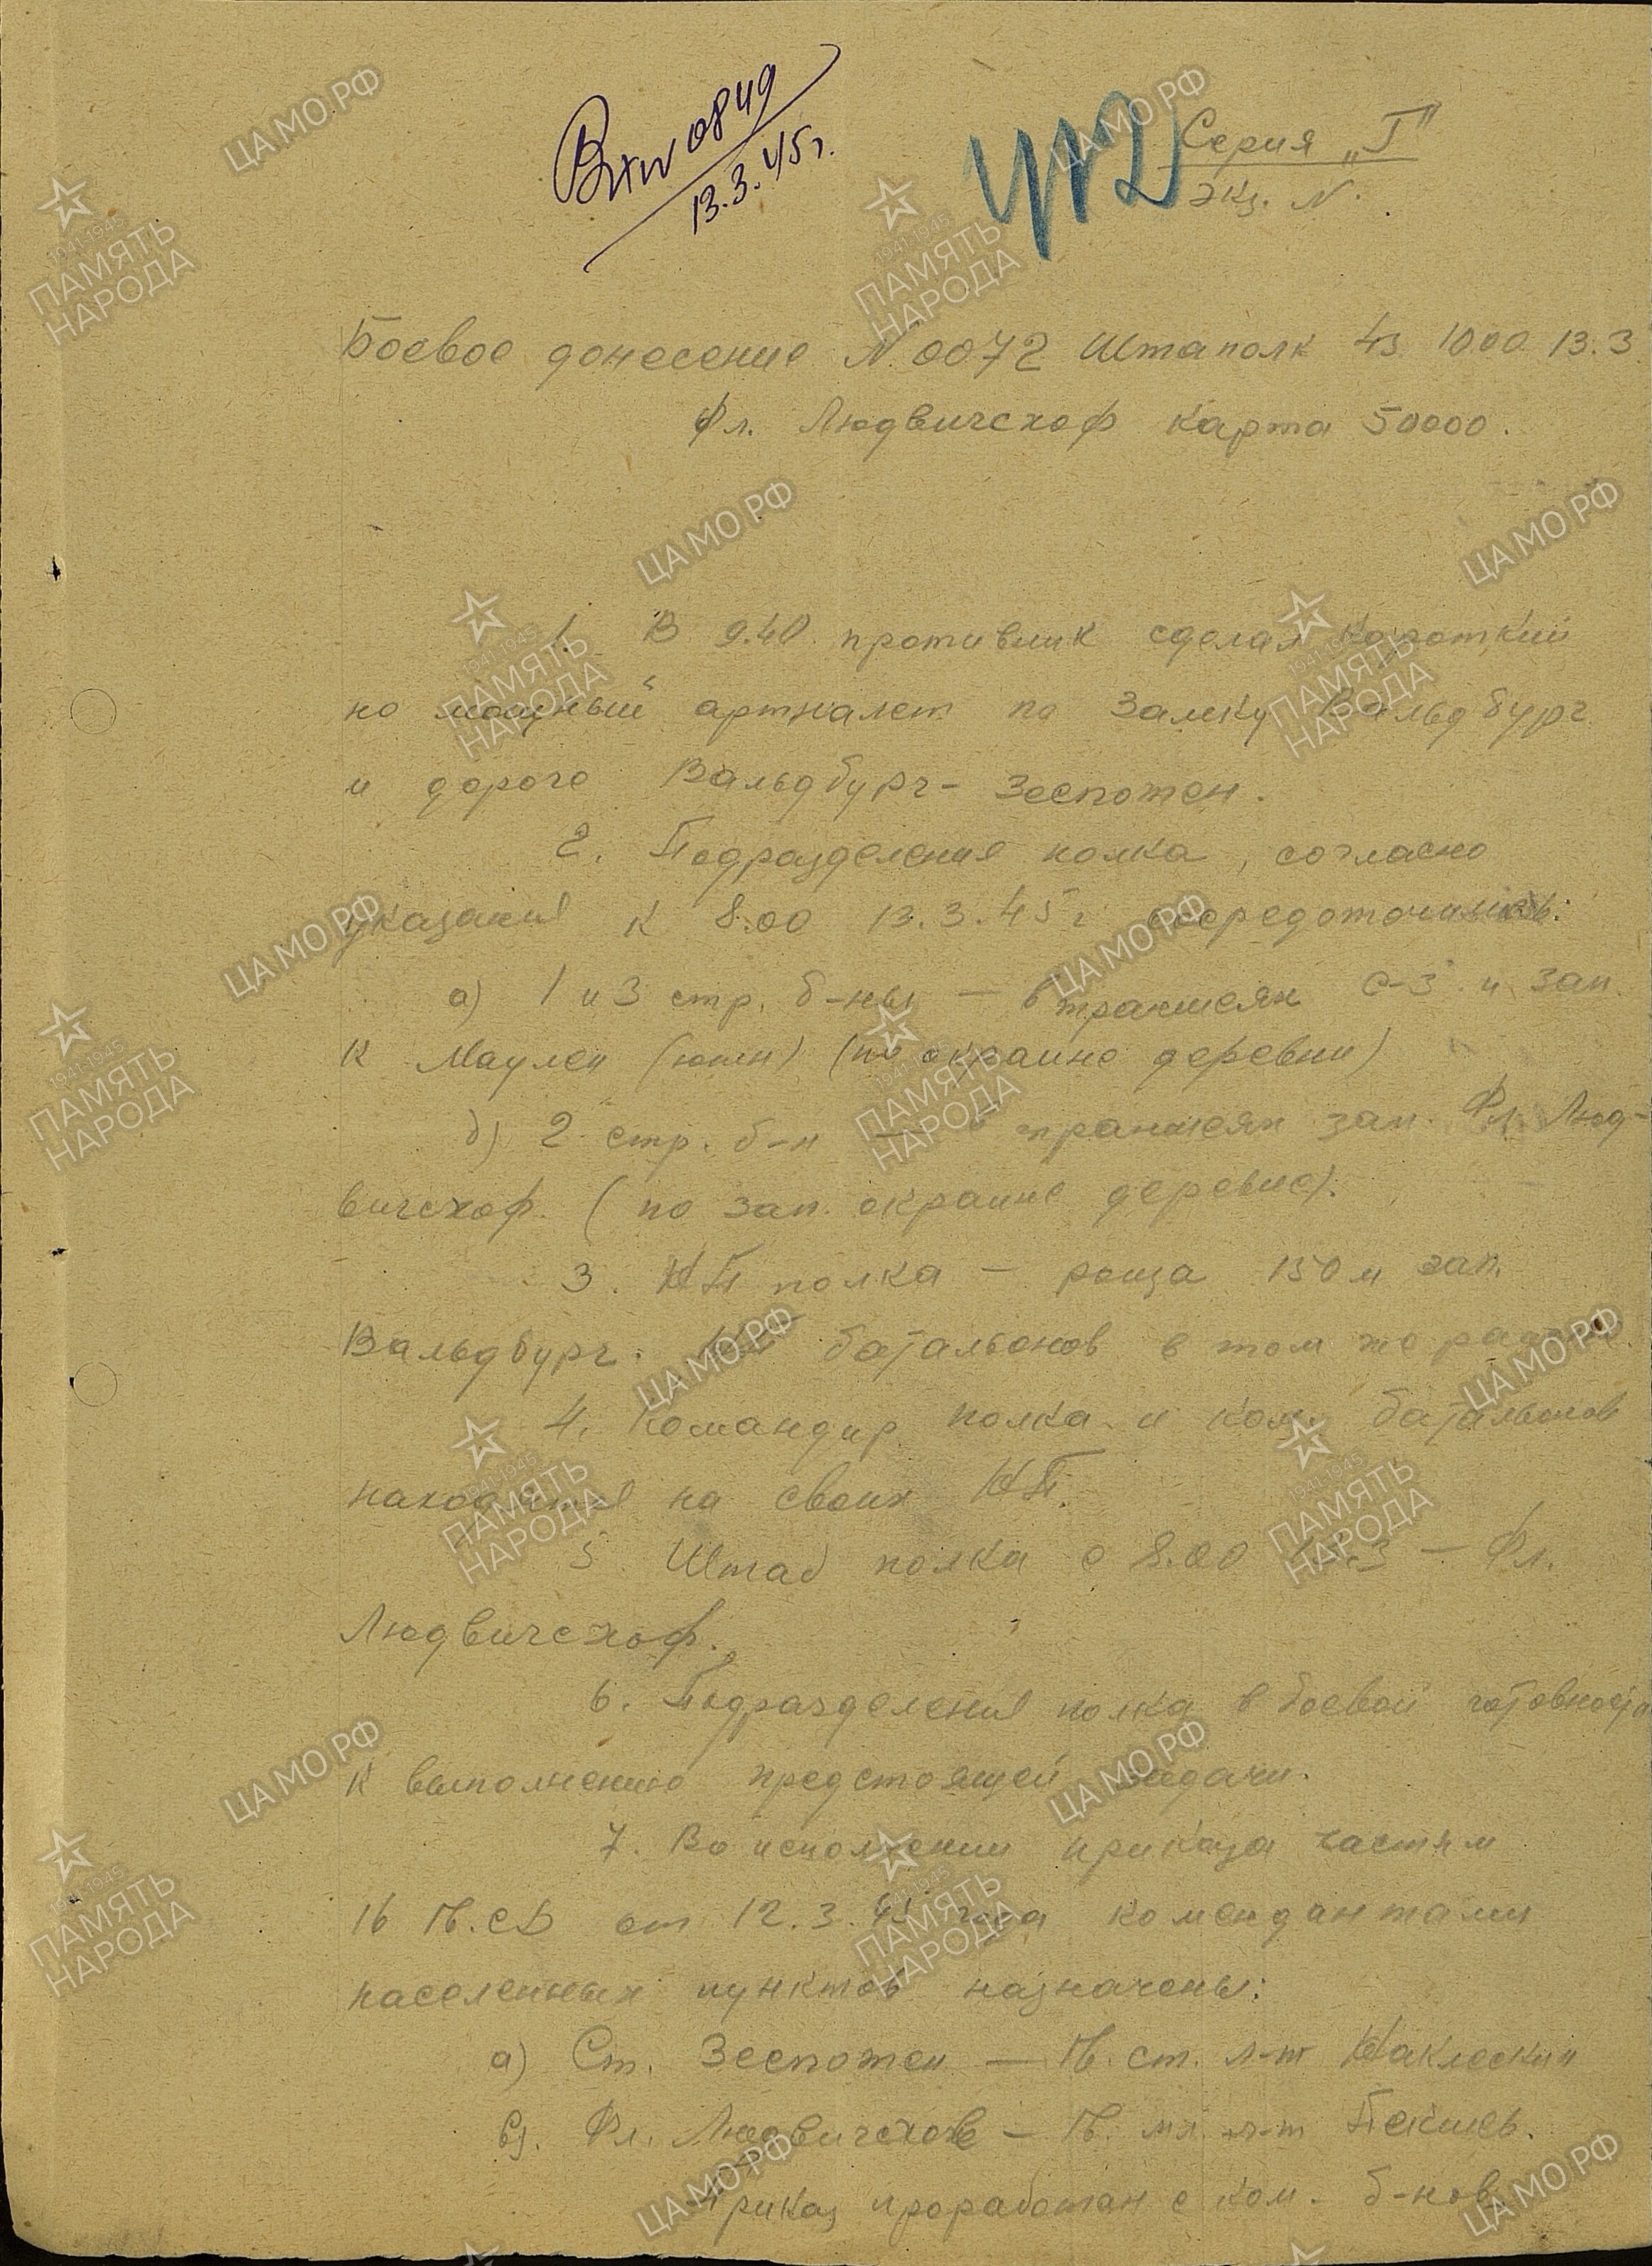 Вх № 0849
13.3.45г.
Серия „Г"
экз. №.
Боевое донесение N.0072 Штаполк 43 10.00 13.3
Фл. Людвигсхоф карта 50000.
1. В 9.40 противник сделал короткий
но мощный артналет по замку Вальдбург
и дороге Вальдбург - Зеепотен.
2. Подразделения полка, согласно
указания к 8.00 13.3.45 г сосредоточились:
а) 1 и 3 стр. б-ны — в траншеях с-з и зап.
к Маулен (южн) (по окраине деревни)
б) 2 стр. б-н — в траншеях зап. Фл. Люд-
вигсхоф. (по зап. окраине деревне).
3. НП полка — роща 150 м зап.
Вальдбург. НП батальонов в том же районе.
4. Командир полка и ком. батальонов
находятся на своих НП.
5 Штаб полка с 8.00 13.3 — Фл.
Людвигсхоф.
6. Подразделения полка в боевой готовности
к выполнению предстоящей задачи.
7. Во исполнении приказа частям
16 Гв.сд от 12.3.45 года комендантами
населенных пунктов назначены:
а) Ст. Зеепотен — Гв. ст. л-т
в). Фл. Людвигсхове — Гв. мл. л-т
Приказ проработан с ком. б-нов